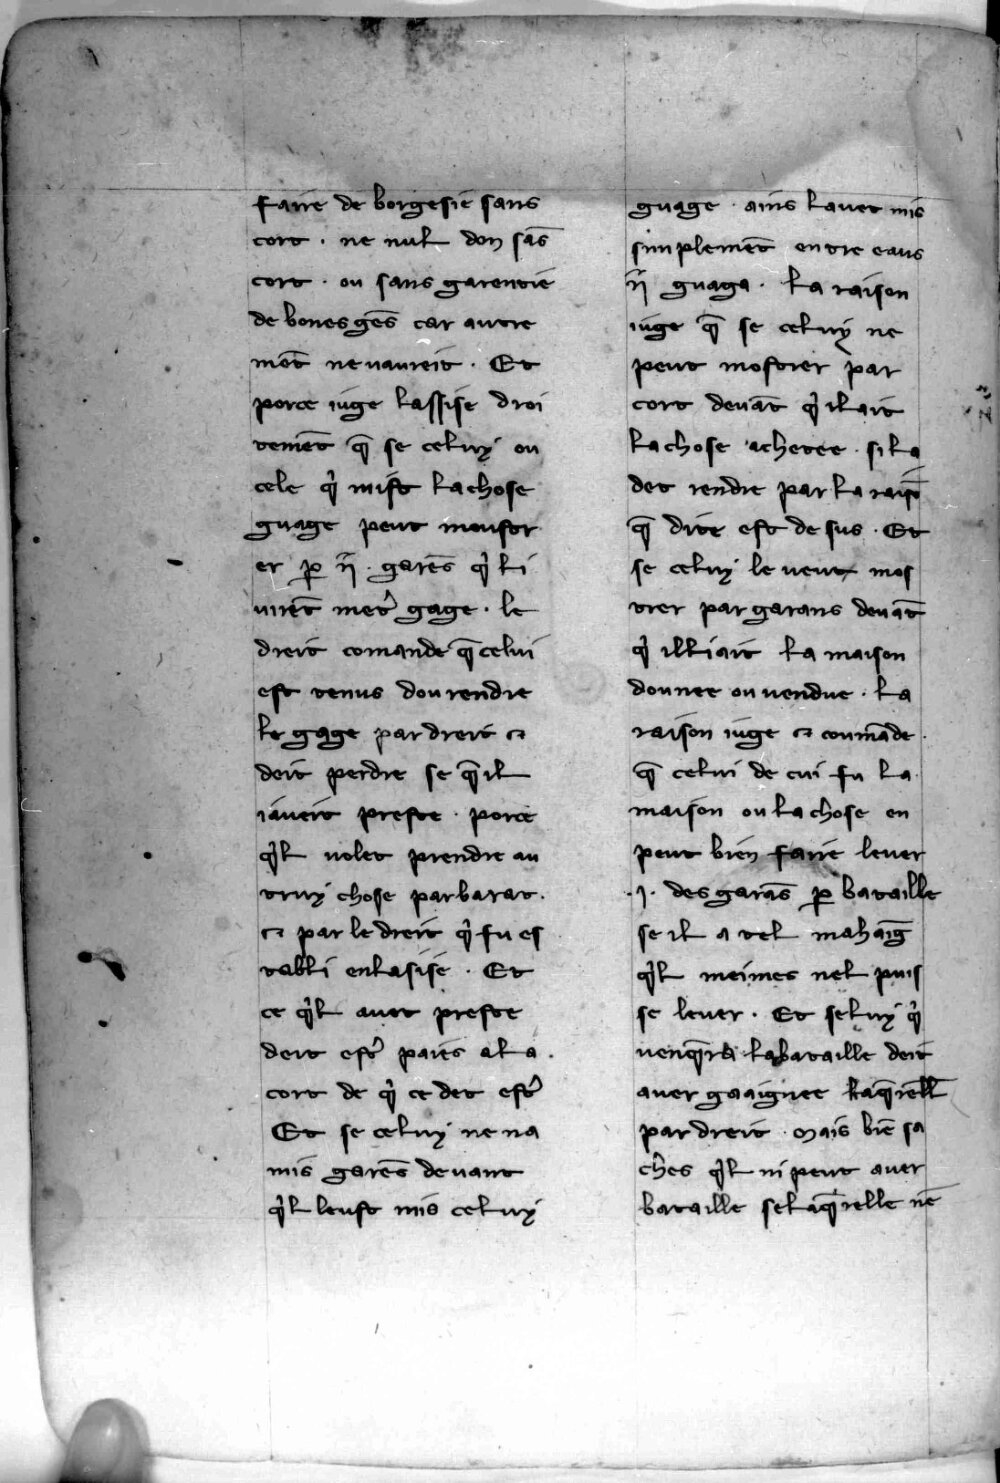 faire de borgesie sans
cort · ne nul don sãs
cort · ou sans garentie
de bones gẽs car autre
mẽt ne vaureit · Et
porce iuge lassise droi
temẽt q̃ se celuy ou
cele q̉ mist la chose
guage peut moustr
er ꝑ ·ij· garẽs q̉ li
virẽt metr̉ gage · le
dreit comande q̃ celui
est tenus dou rendre
le gage par dreit ⁊
deit perdre se q̃ il
i aveit preste · porce
q̉l volet prendre au
truy chose par barat ·
⁊ par le dreit q̉ fu es
tabli en lasise · Et
ce q̉l avet preste
deit estr̉ paies a la ·
cort de q̉ ce det estr̉
Et se celuy ne na
mis garẽs devant
q̉l leust mis celuy
guage · ains lavet mis
simplemẽt entre eaus
·ij· guaga · La raison
iuge q̃ se celuy ne
peut mostrer par
cort devãt q̉ il ait
la chose achetee · si la
det rendre par la raisõ
q̃ dite est desus · Et
se celuy le veut mos
trer par garans devãt
q̉ il li ait la maison
dounee ou vendue · La
raison iuge ⁊ coumãde ·
q̃ celui de cui fu la
maison ou la chose en
peut bien faire lever
·j· des garãs ꝑ bataille
se il a tel mahaĩg
q̉l meimes nel puis
se lever · Et seluy q̉
venq̃ra la bataille deit
aver gaaignee la q̃rell̃
par dreit · Mais biẽ sa
ch̉es q̉l ni peut aver
bataille se la q̃relle nẽ